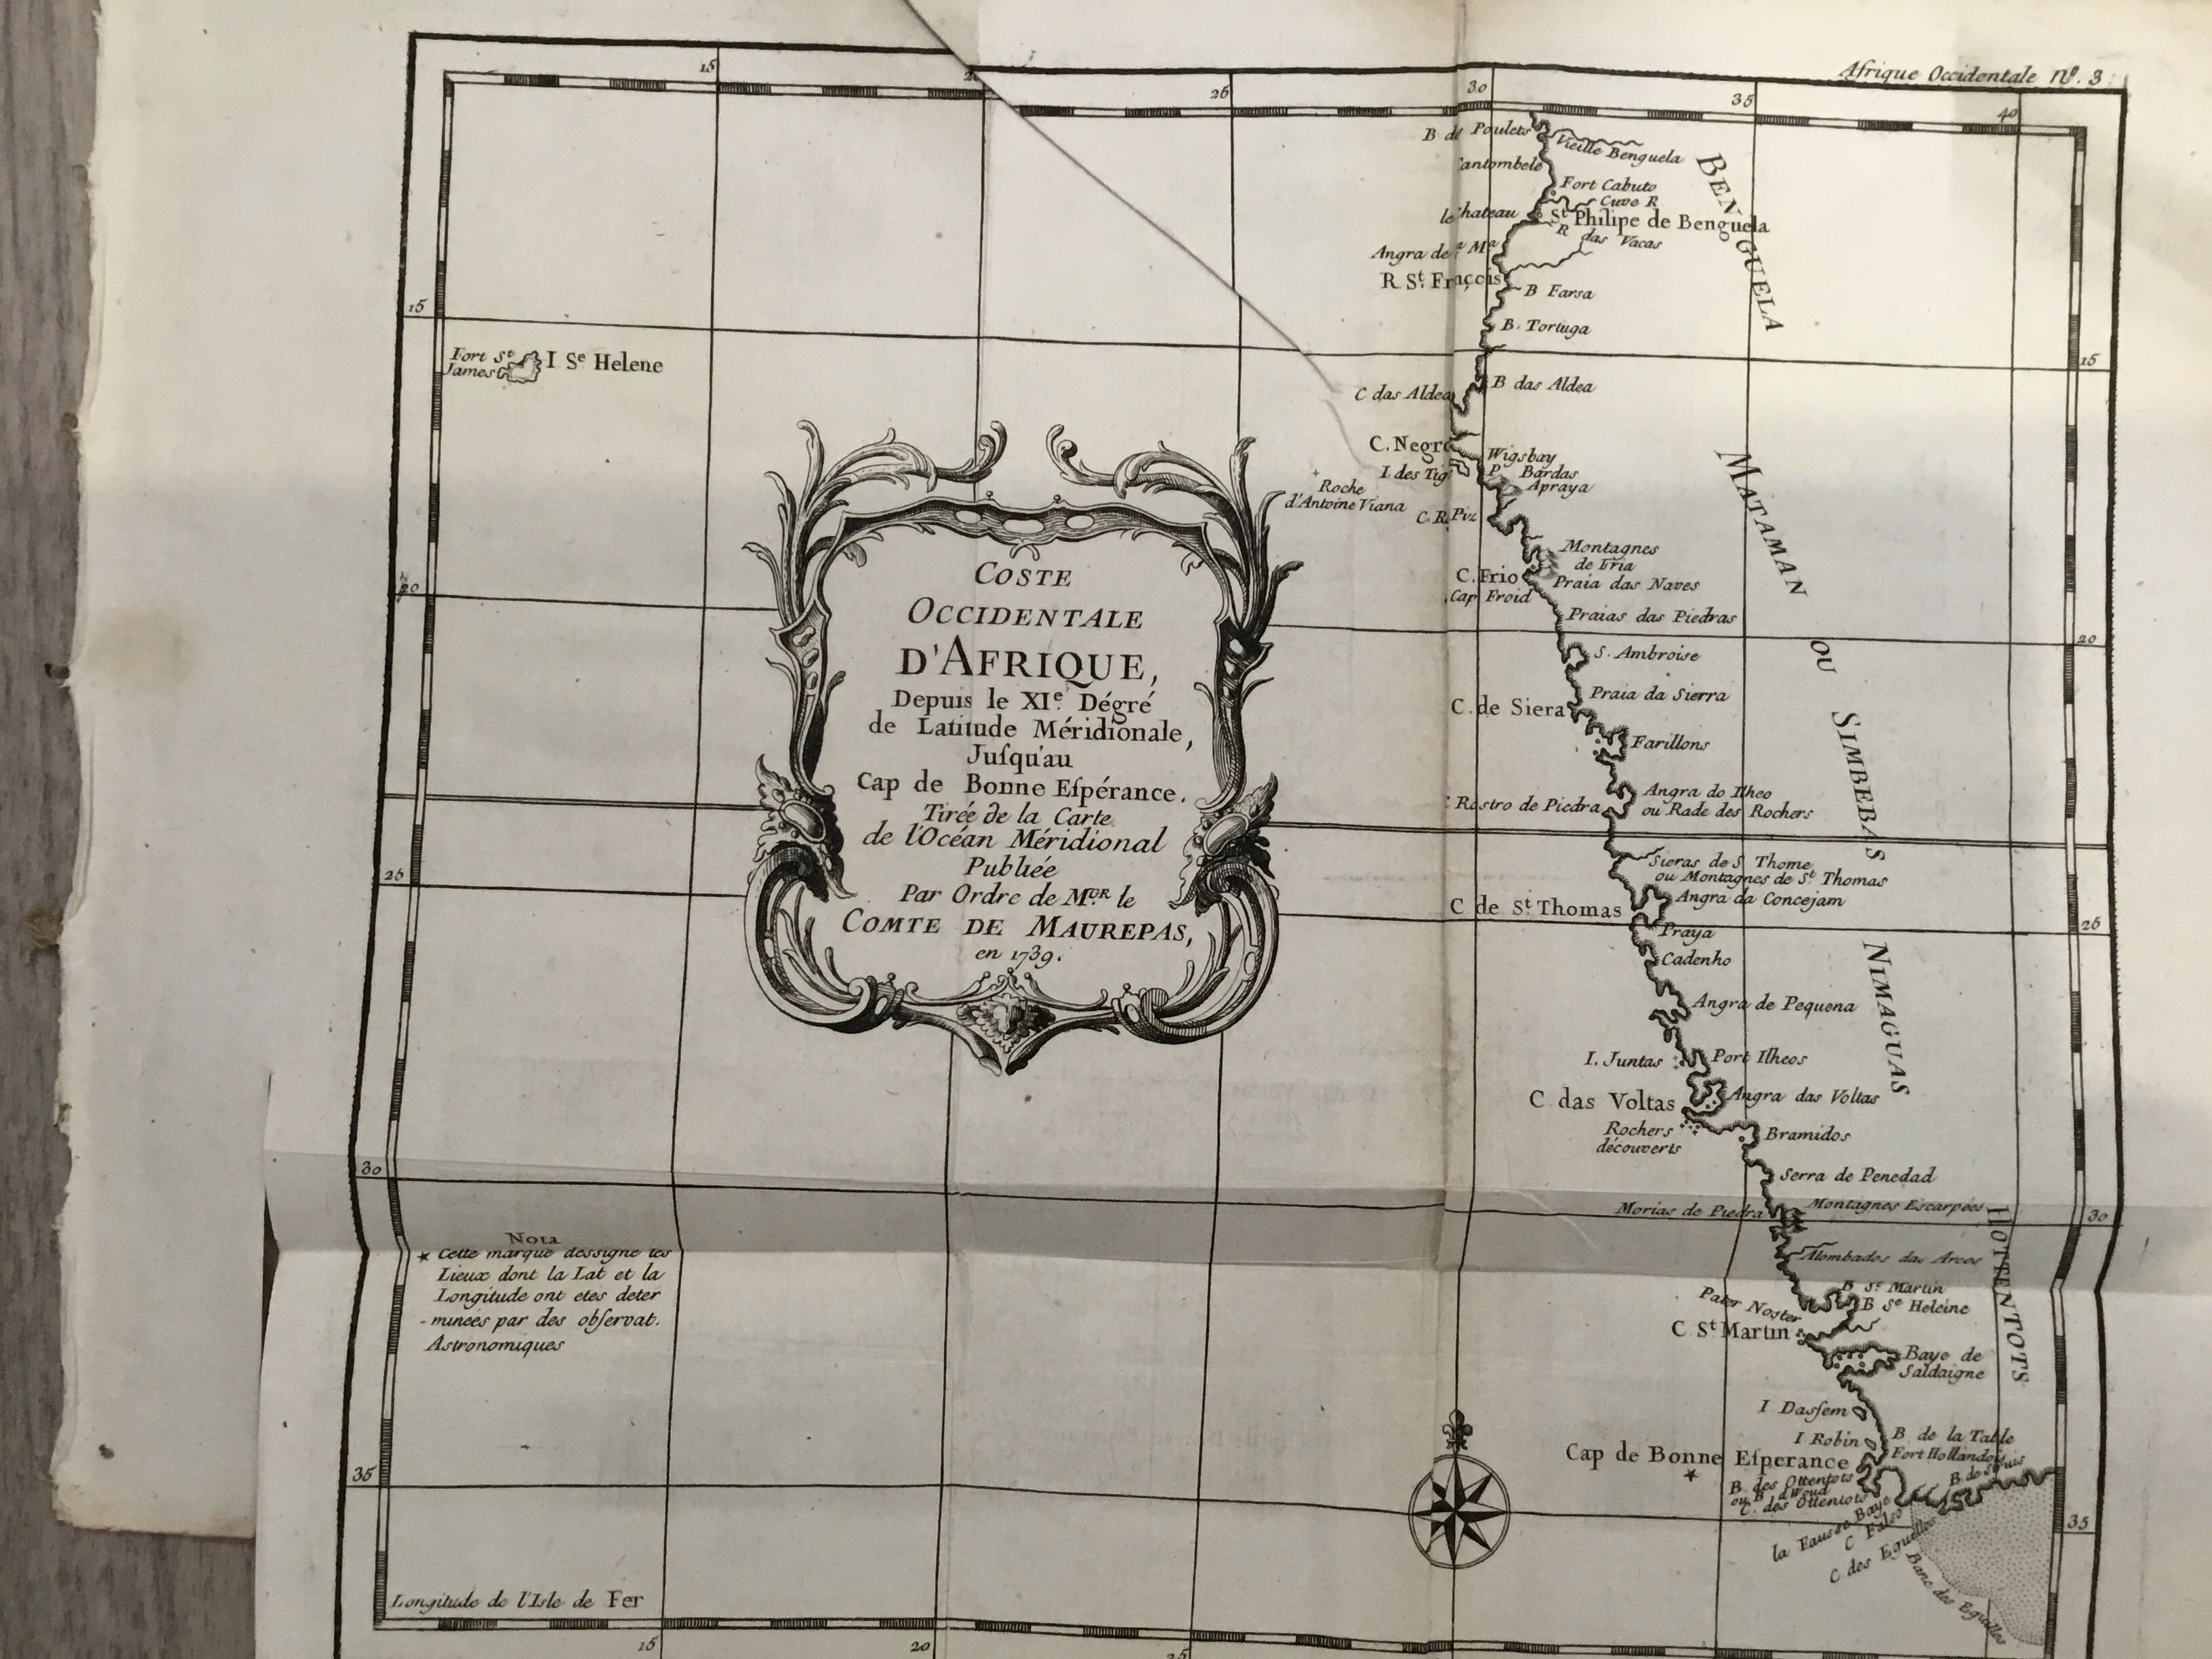 Afrique Occidentale Nº. 3
15
26
30
35
40
B de Poulets
Vieille Benguela
Fort Cabuto
Cuvo R
St Philipe de Benguela
R das Vacas
Angra de
R St. Frnçois
B Farsa
B. Tortuga
BENGUELA
15
15
Fort St
James
I Se Helene
C das Aldea
B das Aldea
C. Negro
Wigsbay
P. Bardas
Apraya
I des Tig
Roche
d'Antoine Viana
Montagnes
de Fria
C. Frio
Cap Froid
Praia das Naves
Praias das Piedras
MATAMAN OU SIMBEBAS
20
20
S. Ambroise
Praia da Sierra
C. de Siera
Farillons
Angra do Ilheo
ou Rade des Rochers
Rostro de Piedra
Sieras de S. Thome
ou Montagnes de St Thomas
C de St. Thomas
Angra da Concejam
COSTE
OCCIDENTALE
D'AFRIQUE,
Depuis le XIe. Dégré
de Latitude Méridionale,
Juſqu'au
Cap de Bonne Eſpérance.
Tirée de la Carte
de l'Océan Méridional
Publiée
Par Ordre de MgR. le
COMTE DE MAUREPAS,
en 1739.
26
26
Praya
Cadenho
Angra de Pequena
NIMAGUAS
I. Juntas
Port Ilheos
C das Voltas
Angra das Voltas
Rochers
découverts
Bramidos
Serra de Penedad
30
30
Morias de Piedra
Montagnes Escarpées
Alombados das Arcos
HOTTENTOTS
Nota
★ Cette marque dessigne les
Lieux dont la Lat et la
Longitude ont etes deter
-minées par des obſervat.
Astronomiques
B St Martin
B Se Heleine
Pater Noster
C St Martin
Baye de
Saldaigne
I Daſsem
I Robin
B de la Table
Cap de Bonne Eſperance
Fort Hollandois
B des Ottentots
C. des Ottentots
la Fausse Baye
C Falso
C. des Eguilles
Banc des Eguilles
35
35
Longitude de l'Isle de Fer
15
20